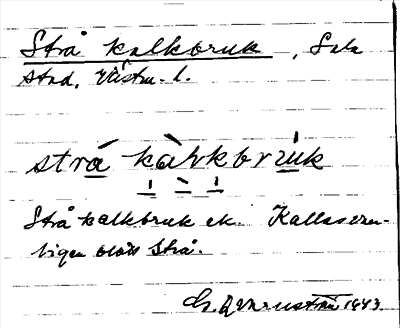 Strå kalkbruk, Sala
stad, Västm. l.
strá kàḷkbrúk
Strå kalkbruk ek. Kallas van-
ligen blott Strå.
1943